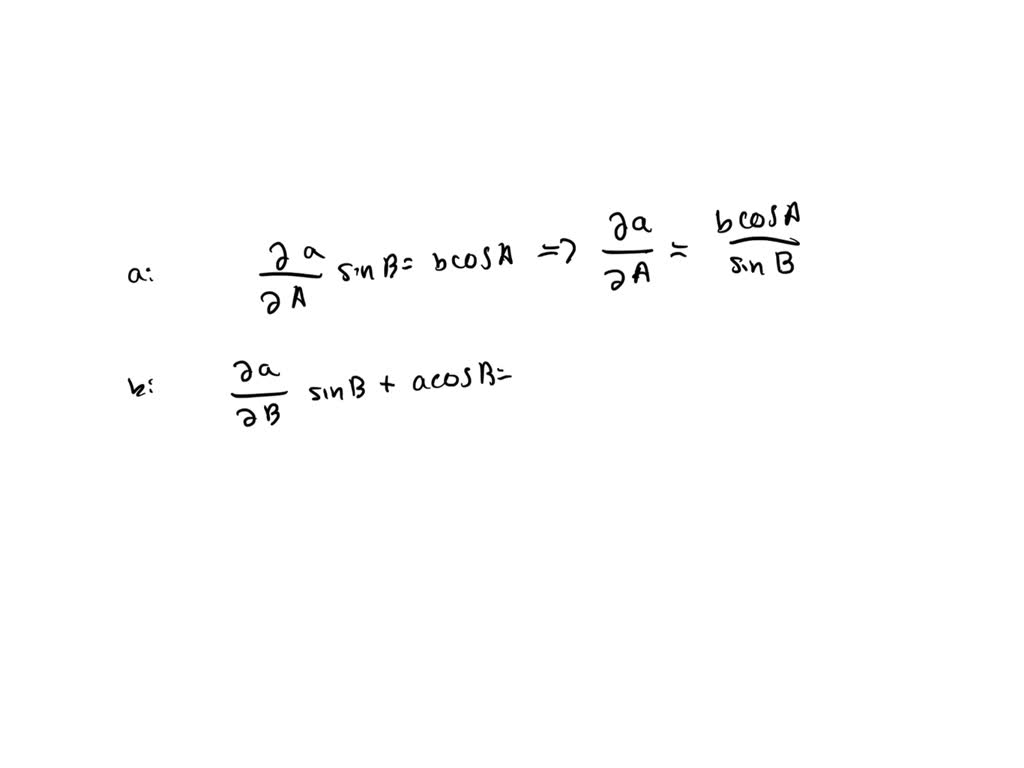 a: ∂a/∂A sin B = b cos A => ∂a/∂A = b cos A / sin B
b: ∂a/∂B sin B + a cos B =